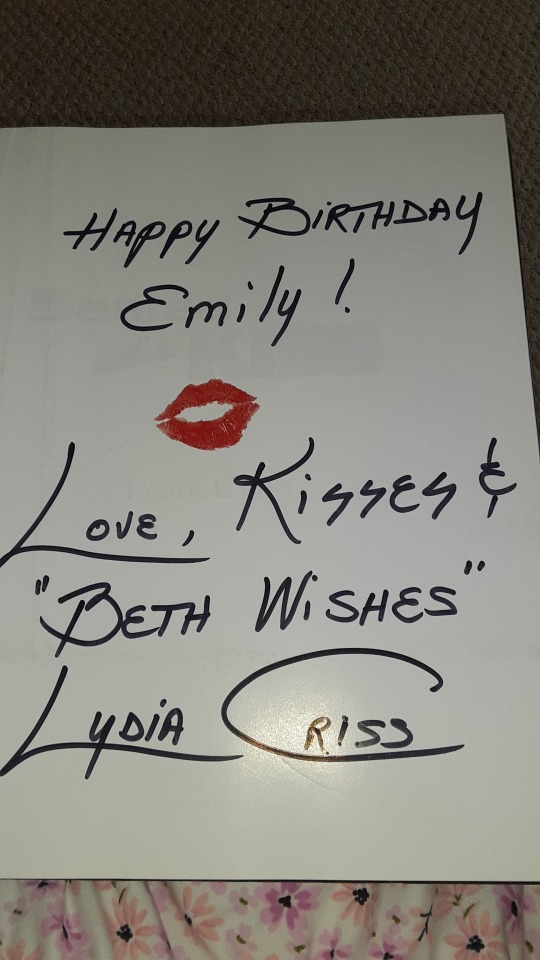 HAPPY BiRTHDAY
Emily!
LOVE, KissES &
"BETH WiSHES"
LYDiA CRISS